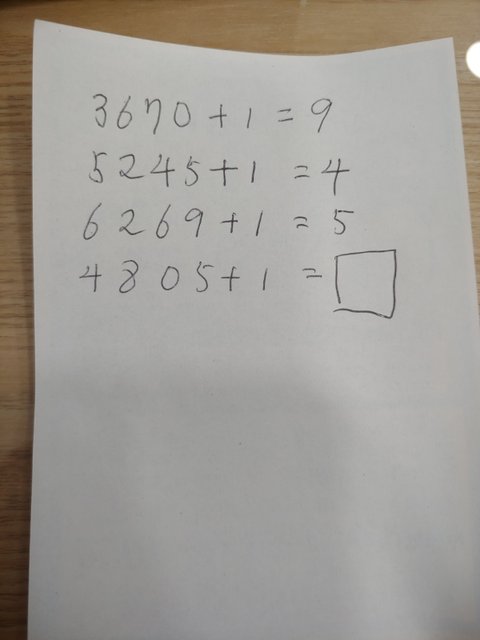 3670+1=9
5245+1=4
6269+1=5
4805+1=